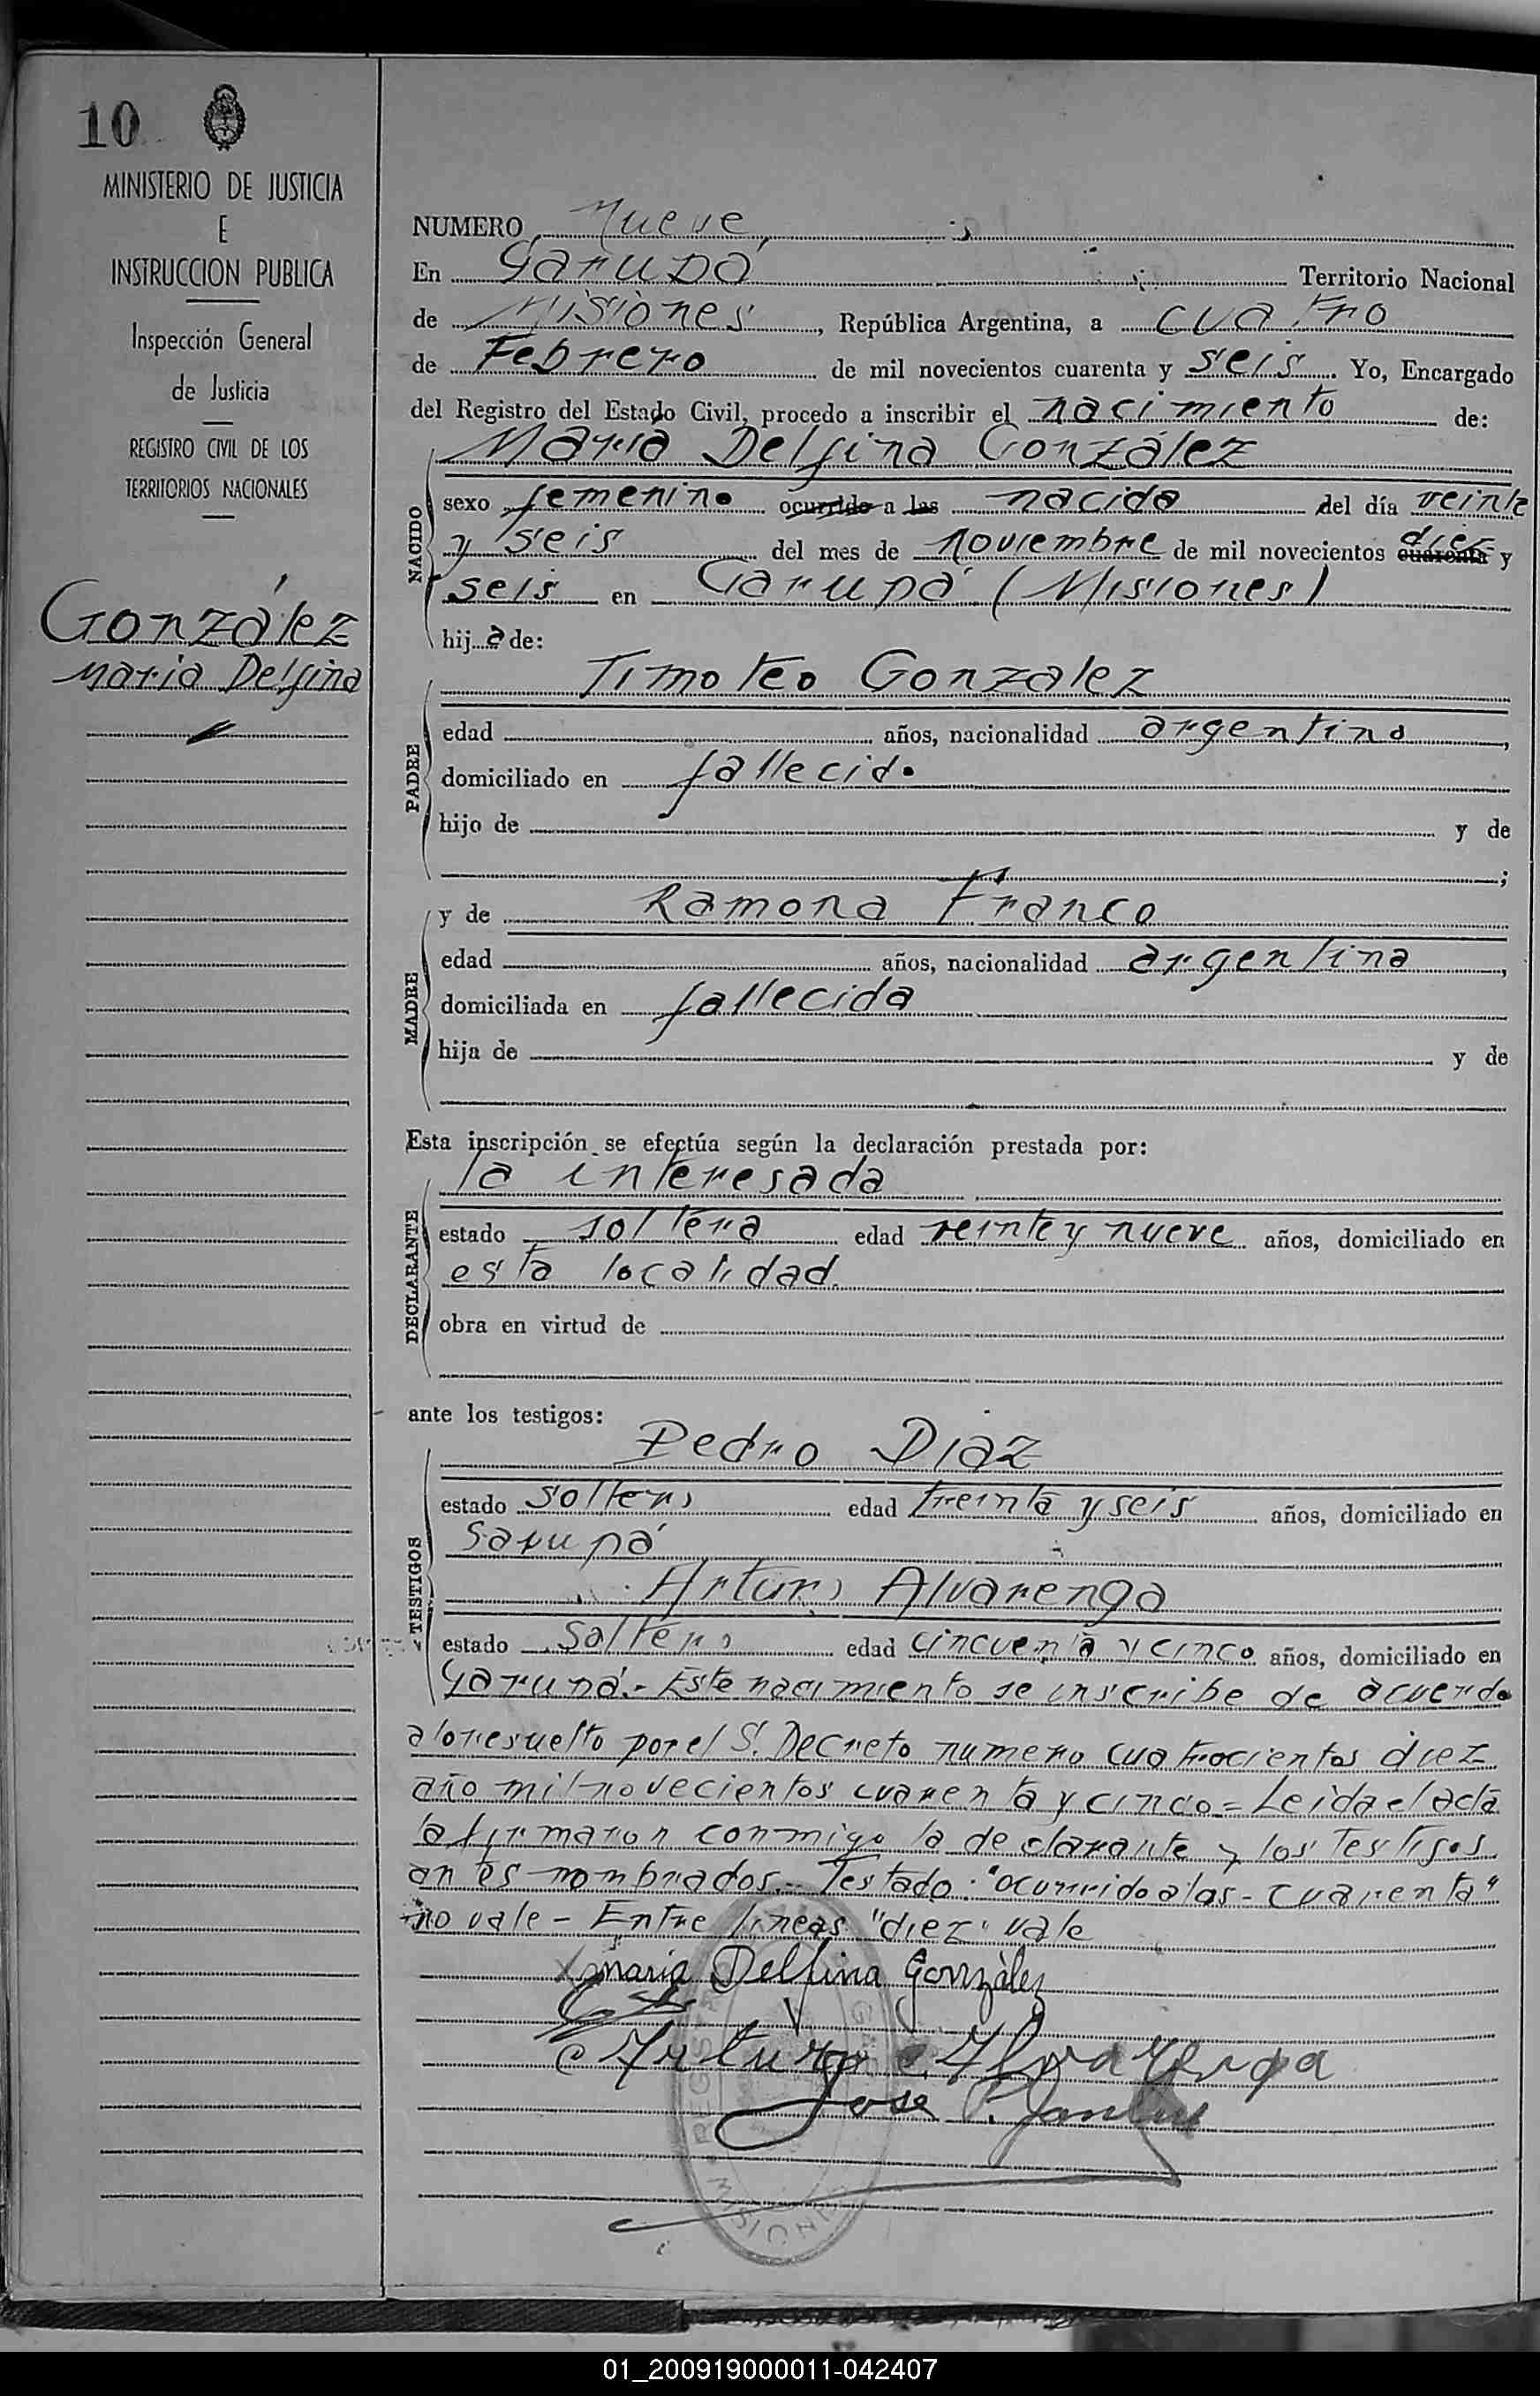 10
MINISTERIO DE JUSTICIA
E
INSTRUCCION PUBLICA
Inspección General
de Justicia
REGISTRO CIVIL DE LOS
TERRITORIOS NACIONALES
González
Maria Delfina
NUMERO Nueve
En Garupá Territorio Nacional
de Misiones, República Argentina, a cuatro
de Febrero de mil novecientos cuarenta y seis. Yo, Encargado
del Registro del Estado Civil, procedo a inscribir el nacimiento de:
NACIDO
María Delfina González
sexo femenino ocurrido a las nacida del día veinte
y seis del mes de noviembre de mil novecientos cuarenta diez y
seis en Garupá (Misiones)
hija de:
PADRE
Timoteo Gonzalez
edad años, nacionalidad argentino,
domiciliado en fallecido
hijo de y de
;
MADRE
y de Ramona Franco
edad años, nacionalidad argentina,
domiciliada en fallecida
hija de y de
Esta inscripción se efectúa según la declaración prestada por:
DECLARANTE
la interesada
estado soltera edad veinte y nueve años, domiciliado en
esta localidad.
obra en virtud de
ante los testigos:
TESTIGOS
Pedro Diaz
estado soltero edad treinta y seis años, domiciliado en
Garupá
Arturo Alvarenga
estado soltero edad cincuenta y cinco años, domiciliado en
Garupá.- Este nacimiento se inscribe de acuerdo
a lo resuelto por el S. Decreto numero cuatrocientos diez
año mil novecientos cuarenta y cinco = Leida el acta
la firmaron conmigo la declarante y los testigos
antes nombrados.- Testado: "ocurrido a las - cuarenta"
no vale - Entre lineas "diez" vale
Maria Delfina González
Arturo Alvarenga
Jose
REGISTR
MISIONES
01_200919000011-042407